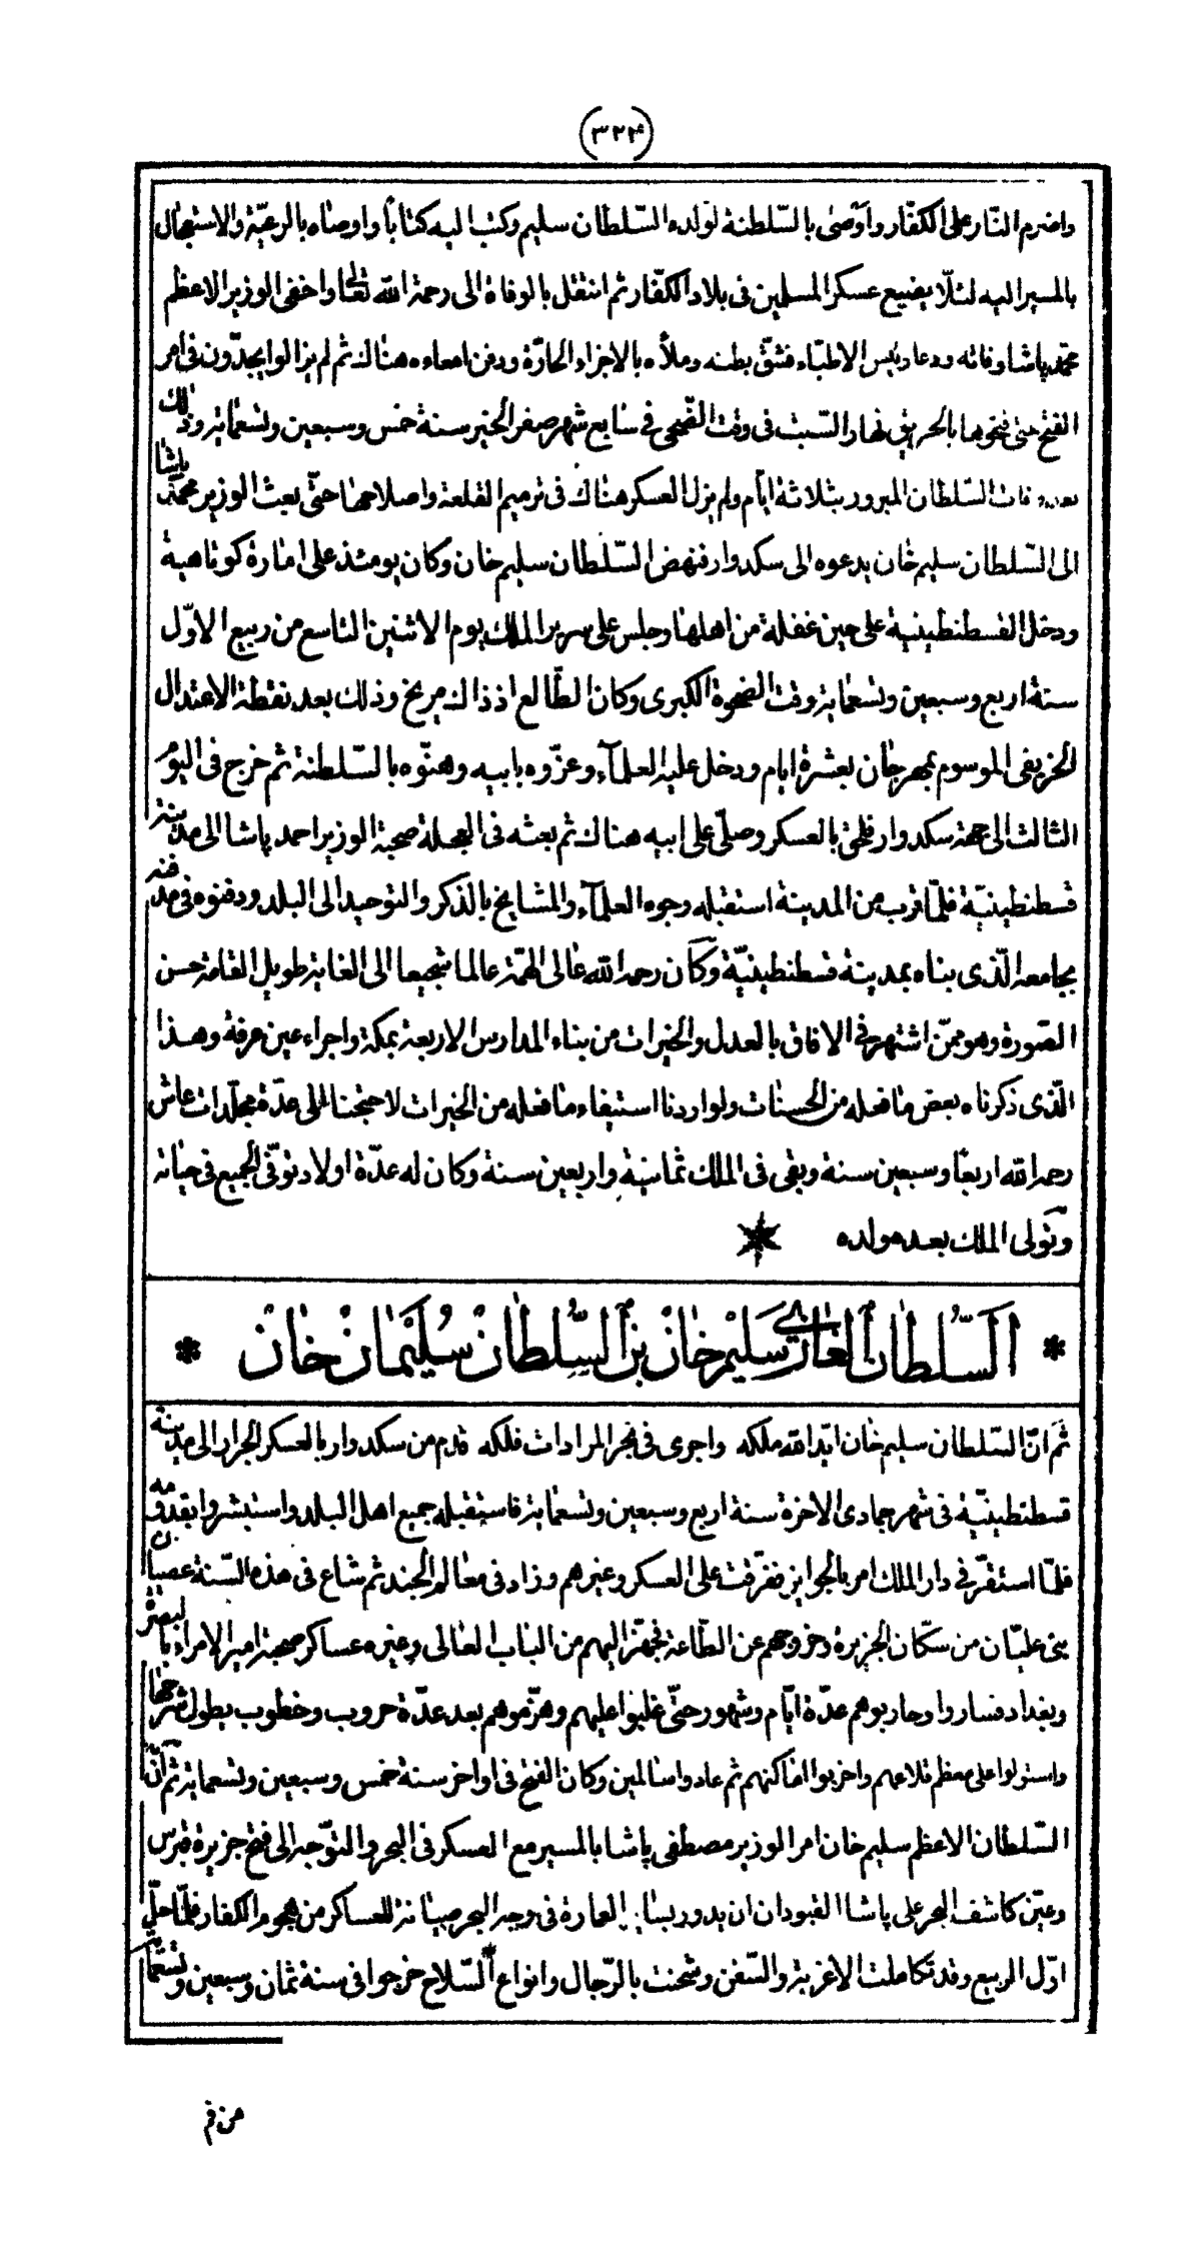 (٣٢٤)
واضرم النّار على الكفّار واوصى بالسّلطنة لولده السّلطان سليم وكتب اليه كتابًا واوصاه بالرعيّة والاستعجال
بالمسير اليه لئلّا يضيع عسكر المسلمين فى بلاد الكفّار ثم انتقل بالوفاة الى رحمة الله تعالى واخفى الوزير الاعظم
محمّد پاشا وفاته ودعا رئيس الاطبّاء فشقّ بطنه وملأه بالاجزاء الحارّة ودفن امعاءه هناك ثم لم يزالوا يجدّون فى امر
الفتح حتى فتحوها بالحريق نهار السّبت فى وقت الضّحى فى سابع شهر صفر الخير سنة خمس وسبعين وتسعماية وذلك
بعد وفات السّلطان المبرور بثلاثة ايّام ولم يزل العسكر هناك فى ترميم القلعة واصلاحها حتّى بعث الوزير محمّد پاشا
الى السّلطان سليم خان يدعوه الى سكدوار فنهض السّلطان سليم خان وكان يومئذ على امارة كوتاهية
ودخل القسطنطينية على حين غفلة من اهلها وجلس على سرير الملك يوم الاثنين التاسع من ربيع الاوّل
سنة اربع وسبعين وتسعماية وقت الضحوة الكبرى وكان الطّالع اذ ذاك مريخ وذلك بعد نقطة الاعتدال
الخريفى الموسوم بمهرجان بعشرة ايام ودخل عليه العلمآء وعزّوه بابيه وهنّوه بالسّلطنة ثم خرج فى اليوم
الثالث الى جهة سكدوار فلحق بالعسكر وصلّى على ابيه هناك ثم بعثه فى العجلة صحبة الوزير احمد پاشا الى مدينة
قسطنطينيّة فلمّا قرب من المدينة استقبله وجوه العلمآء والمشايخ بالذكر والتوحيد الى البلد ودفنوه فى مدفنه
بجامعه الّذى بناه بمدينة قسطنطينيّة وكان رحمه الله عالى الهمّة عالما شجيعا الى الغاية طويل القامة حسن
الصّورة وهو ممّن اشتهر فى الافاق بالعدل والخيرات من بناء المدارس الاربعة بمكة واجراء عين عرفة وهذا
الّذى ذكرناه بعض ما فعله من الحسنات ولو اردنا استيفاء ما فعله من الخيرات لاحتجنا الى عدّة مجلّدات عاش
رحمه الله اربعًا وسبعين سنة وبقى فى الملك ثمانية واربعين سنة وكان له عدّة اولاد توفّى الجميع فى حياته
وتولى الملك بعده ولده *
* السُّلطان الغازى سليم خان بن السُّلطان سُليمان خان *
ثم انّ السّلطان سليم خان ايّد الله ملكه واجرى فى بحر المرادات فلكه قدم من سكدوار بالعسكر الجرار الى مدينة
قسطنطينيّة فى شهر جمادى الاخرة سنة اربع وسبعين وتسعماية فاستقبله جميع اهل البلد واستبشروا بقدومه
فلمّا استقرّ فى دار الملك امر بالجوايز ففرّقت على العسكر وغيرهم وزاد فى معالم الجند ثم شاع فى هذه السّنة عصيان
بنى عليّان من سكّان الجزيرة وخروجهم عن الطّاعة فجهّز اليهم من الباب العالى وغيره عساكر صحبة امير الامراء بالبصرة
وبغداد فساروا وحاربوهم عدّة ايّام وشهور حتّى غلبوا عليهم وهزموهم بعد عدّة حروب وخطوب يطول شرحها
واستولوا على معظم قلاعهم واخربوا اماكنهم ثم عادوا سالمين وكان الفتح فى اواخر سنة خمس وسبعين وتسعماية ثم انّ
السّلطان الاعظم سليم خان امر الوزير مصطفى پاشا بالمسير مع العسكر فى البحر والتوّجه الى فتح جزيرة قبرس
وعيّن كاشف البحر على پاشا القبودان ان يدور بساير العمارة فى وجه البحر صيانة للعساكر من هجوم الكفار فلمّا حلّ
اوّل الربيع وقد تكاملت الاغربة والسّفن وشحنت بالرّجال وانواع السّلاح خرجوا فى سنة ثمان وسبعين وتسعماية
من قم